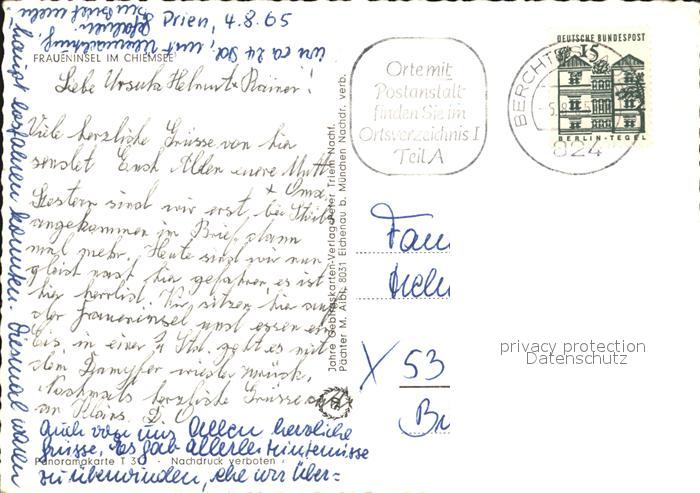 Prien, 4.8.65
FRAUENINSEL IM CHIEMSEE
Liebe Ursula Helmut + Rainer!
Viele herzliche Grüsse von hier
sendet Euch Allen eure Mutti
+ Oma.
Gestern sind wir erst, bei
angekommen im Brief dann
mal mehr. Heute sind wir nun
gleich nach hier gefahren, es ist
hier herrlich. Wir sitzen hier auf
der Fraueninsel und essen ein
Eis, in einer 1/4 Std. geht es mit
dem Dampfer wieder zurück.
Nochmals herzliche Grüsse auch
an Klaus. D. O.
Auch von uns Allen herzliche
Grüsse, es gab allerlei Hindernisse
zu überwinden, ehe wir über=
haupt losfahren konnten. Diesmal waren
wir ca 24 Std. mit
Panoramakarte T 30 - Nachdruck verboten
Jahre Gebirgskarten-Verlag Peter Triem Nachf.
Pächter M. Albr. 8031 Eichenau b. München Nachdr. verb.
Orte mit
Postanstalt
finden Sie im
Ortsverzeichnis I
Teil A
BERCHT
824
DEUTSCHE BUNDESPOST
15
BERLIN-TEGEL
Fam
Helm
53
privacy protection
Datenschutz